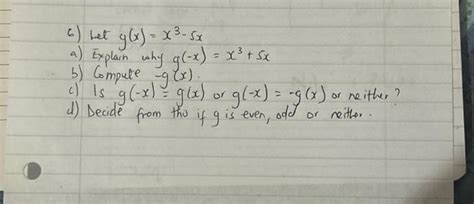 6) Let g(x) = x³-5x
a) Explain why g(-x) = x³ + 5x
b) Compute -g(x).
c) Is g(-x) = g(x) or g(-x) = -g(x) or neither?
d) Decide from the if g is even, odd or neither.